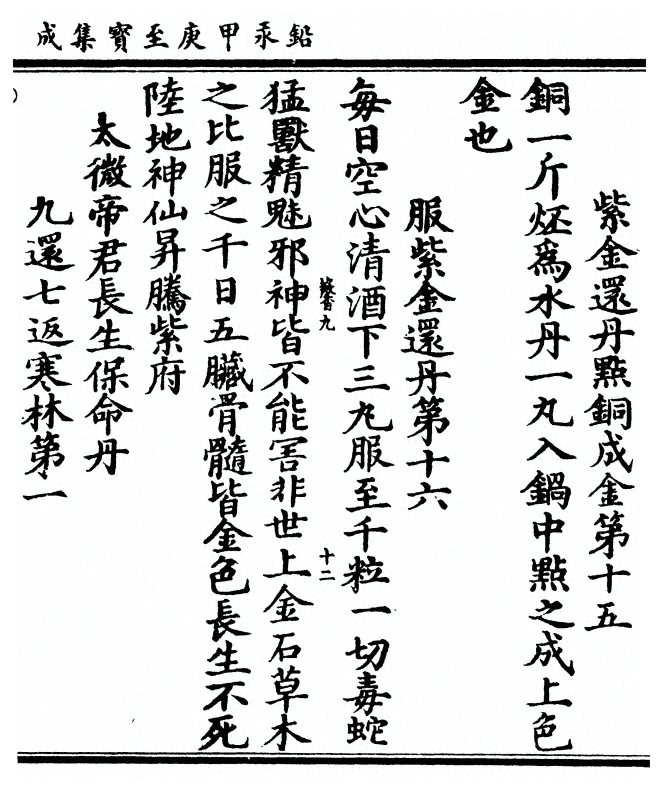 鉛汞甲庚至寶集成
紫金還丹點銅成金第十五
銅一斤烓為水丹一丸入鍋中點之成上色
金也
服紫金還丹第十六
每日空心清酒下三丸服至千粒一切毒蛇
猛獸精魅邪神皆不能害非世上金石草木
之比服之千日五臟骨髓皆金色長生不死
陸地神仙昇騰紫府
太微帝君長生保命丹
九還七返寒林第一
九
十二